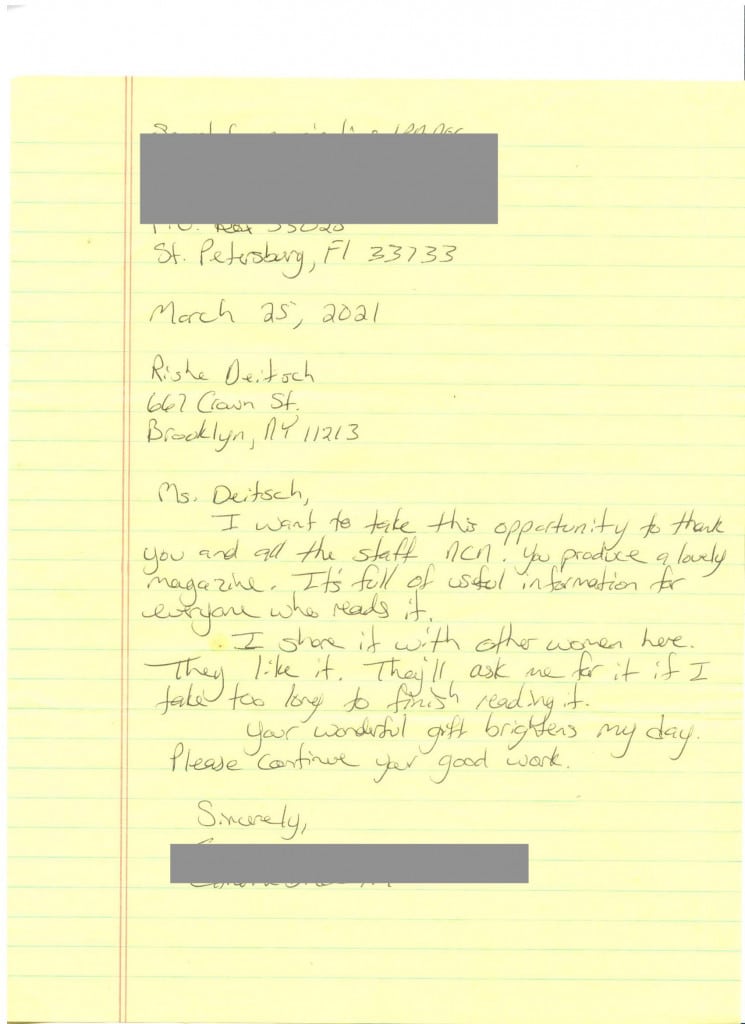 St. Petersburg, Fl 33733
March 25, 2021
Rishe Deitsch
667 Crown St.
Brooklyn, NY 11213
Ms. Deitsch,
I want to take this opportunity to thank
you and all the staff NCN. You produce a lovely
magazine. It's full of useful information for
everyone who reads it.
I share it with other women here.
They like it. They'll ask me for it if I
take too long to finish reading it.
Your wonderful gift brightens my day.
Please continue your good work.
Sincerely,